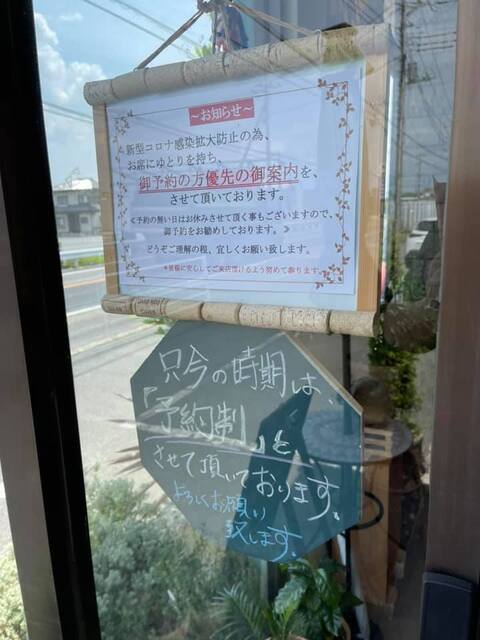 ～お知らせ～
新型コロナ感染拡大防止の為、
お席にゆとりを持ち、
御予約の方優先の御案内を、
させて頂いております。
＜予約の無い日はお休みさせて頂く事もございますので、
御予約をお勧めしております。＞
どうぞご理解の程、宜しくお願い致します。
*皆様に安心してご来店頂けるよう努めて参ります。
只今の時期は、
「予約制」と
させて頂いております。
よろしくお願い
致します。